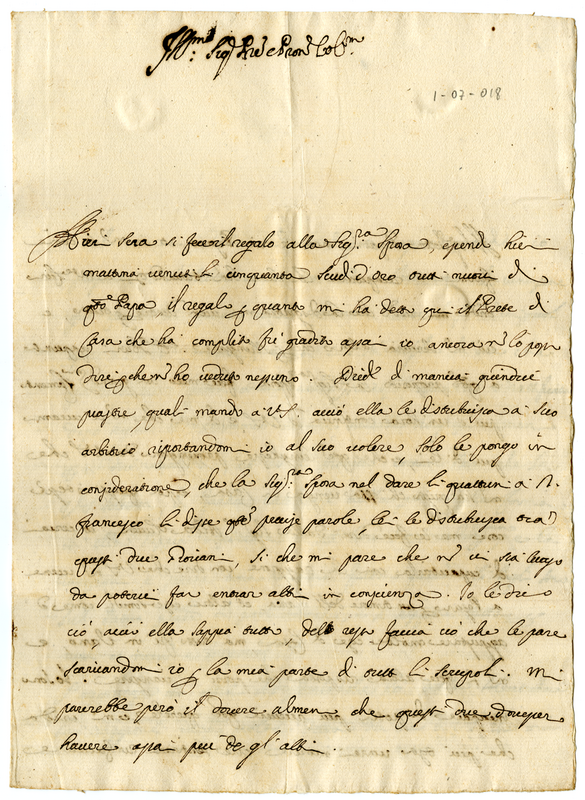 Ill.mo Sig.r e Pron Col.mo
1-07-018
Hieri sera si fece il regalo alla Sig.ra Sposa, e hieri
mattina venuti li cinquanta scudi d'oro tutti nuovi di
qto Papa il regalo, quanto mi ha detto qui il Prete di
Casa che ha complito fù gradito assai, io ancora nõ lo poss
dire che nõ ho veduto nessuno. Diede di mancia quindici
piastre, quali mando a V.S. acciò ella le distribuisca a suo
arbitrio riportandomi io al suo volere, solo le pongo in
consideratione, che la Sig.ra Sposa nel dare li quattrini a
francesco li disse qte precise parole, le distribuisca tra
questi due, si che mi pare che nõ vi sia luogo
da poterci far entrar altri in conscienza. Io le dico
ciò acciò ella sappia tutto, del resto faccia ciò che le pare
scaricandomi io la mia parte di tutti li scrupoli. Mi
parerebbe però il dovere almen che questi due dovesser
havere assai più de gl'altri.